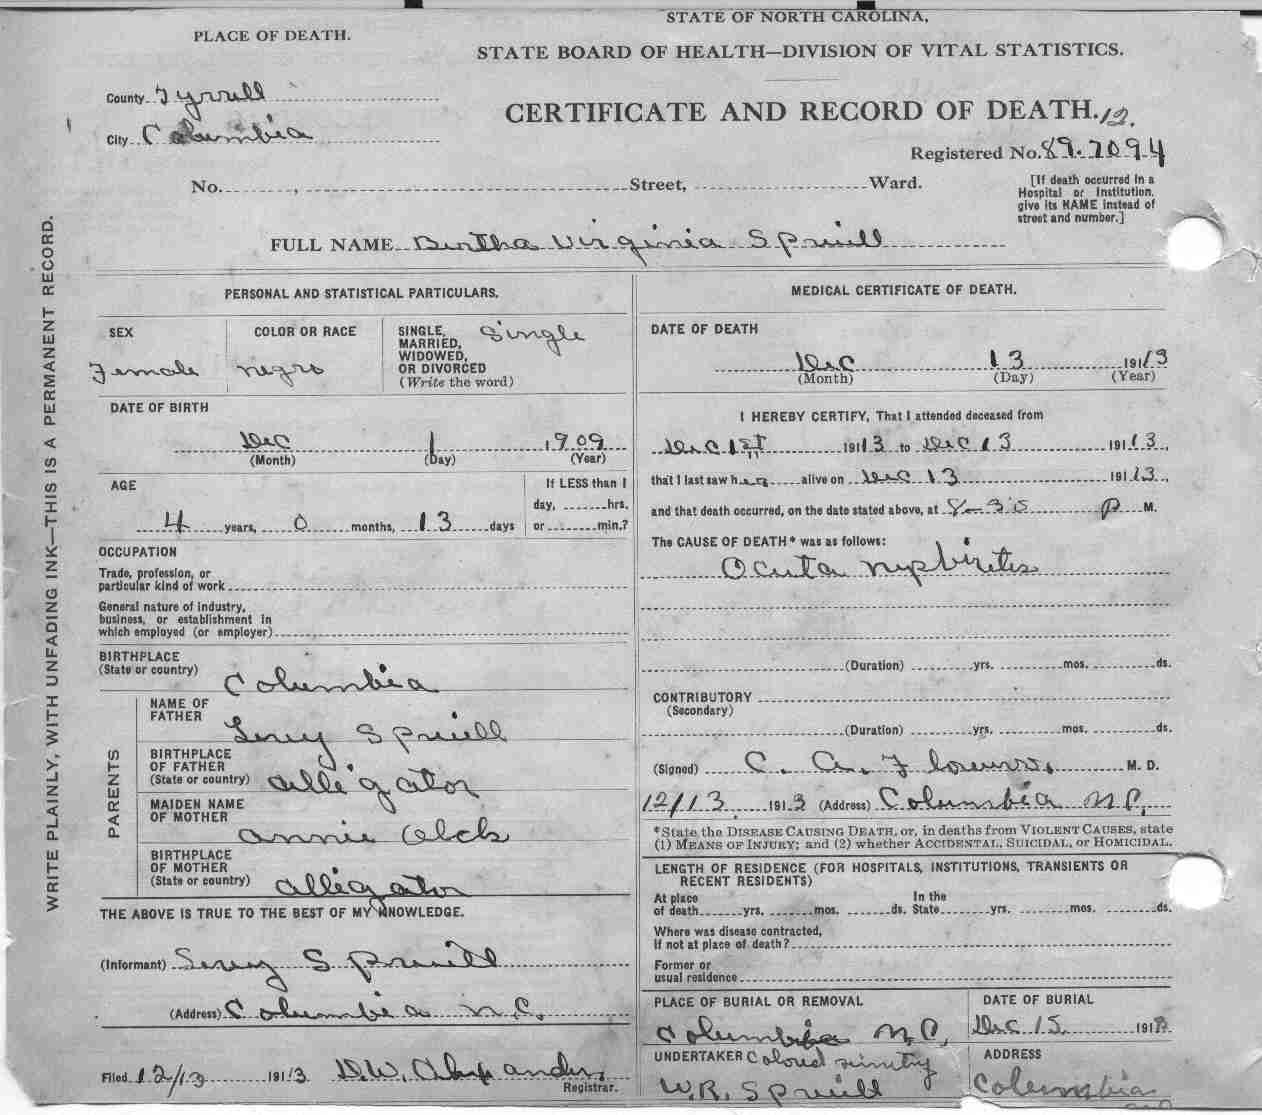 STATE OF NORTH CAROLINA,
PLACE OF DEATH.
STATE BOARD OF HEALTH—DIVISION OF VITAL STATISTICS.
County Tyrrell
CERTIFICATE AND RECORD OF DEATH. 12.
City Columbia
Registered No. 89. 7094
No. , Street, Ward.
[If death occurred in a
Hospital or Institution,
give its NAME instead of
street and number.]
FULL NAME Birtha Virginia Spruill
WRITE PLAINLY, WITH UNFADING INK—THIS IS A PERMANENT RECORD.
PERSONAL AND STATISTICAL PARTICULARS.
SEX
Female
COLOR OR RACE
negro
SINGLE, Single
MARRIED,
WIDOWED,
OR DIVORCED
(Write the word)
DATE OF BIRTH
Dec 1 1909
(Month) (Day) (Year)
AGE
4 years, 0 months, 13 days
If LESS than 1
day, hrs.
or min.?
OCCUPATION
Trade, profession, or
particular kind of work
General nature of industry,
business, or establishment in
which employed (or employer)
BIRTHPLACE
(State or country)
Columbia
PARENTS
NAME OF
FATHER
Spruill
BIRTHPLACE
OF FATHER
(State or country) alligator
MAIDEN NAME
OF MOTHER
annie
BIRTHPLACE
OF MOTHER
(State or country) alligator
THE ABOVE IS TRUE TO THE BEST OF MY KNOWLEDGE.
(Informant) Spruill
(Address) Columbia N.C.
Filed 12/13 1913 D.W. Alexander
Registrar.
MEDICAL CERTIFICATE OF DEATH.
DATE OF DEATH
Dec 13 1913
(Month) (Day) (Year)
I HEREBY CERTIFY, That I attended deceased from
Dec 1st 1913 to Dec 13 1913,
that I last saw her alive on Dec 13 1913,
and that death occurred, on the date stated above, at 8-30 P M.
The CAUSE OF DEATH* was as follows:
(Duration) yrs. mos. ds.
CONTRIBUTORY
(Secondary)
(Duration) yrs. mos. ds.
(Signed) C. A. M. D.
12/13 1913 (Address) Columbia N.C.
*State the DISEASE CAUSING DEATH, or, in deaths from VIOLENT CAUSES, state
(1) MEANS OF INJURY; and (2) whether ACCIDENTAL, SUICIDAL, or HOMICIDAL.
LENGTH OF RESIDENCE (FOR HOSPITALS, INSTITUTIONS, TRANSIENTS OR
RECENT RESIDENTS)
At place In the
of death yrs. mos. ds. State yrs. mos. ds.
Where was disease contracted,
If not at place of death?
Former or
usual residence
PLACE OF BURIAL OR REMOVAL
Columbia N.C.
DATE OF BURIAL
Dec 15 191
UNDERTAKER Colored
W.R. Spruill
ADDRESS
Columbia